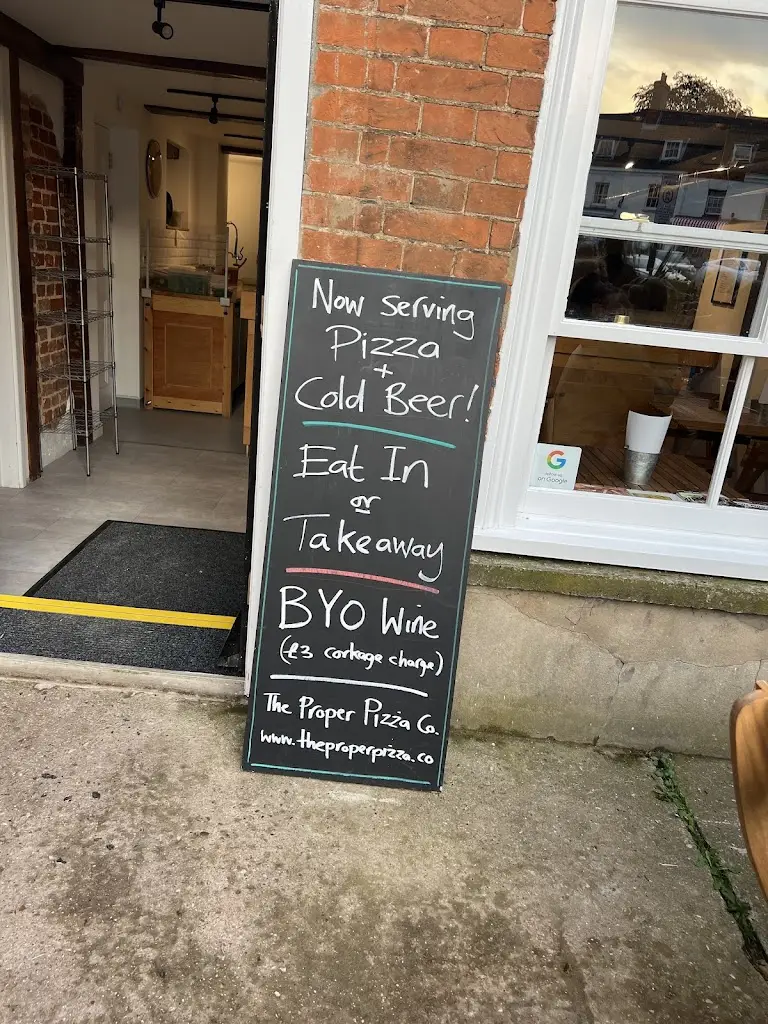 Now Serving
Pizza
+
Cold Beer!
Eat In
or
Takeaway
BYO Wine
(£3 corkage charge)
The Proper Pizza Co.
www.theproperpizza.co
G
on Google